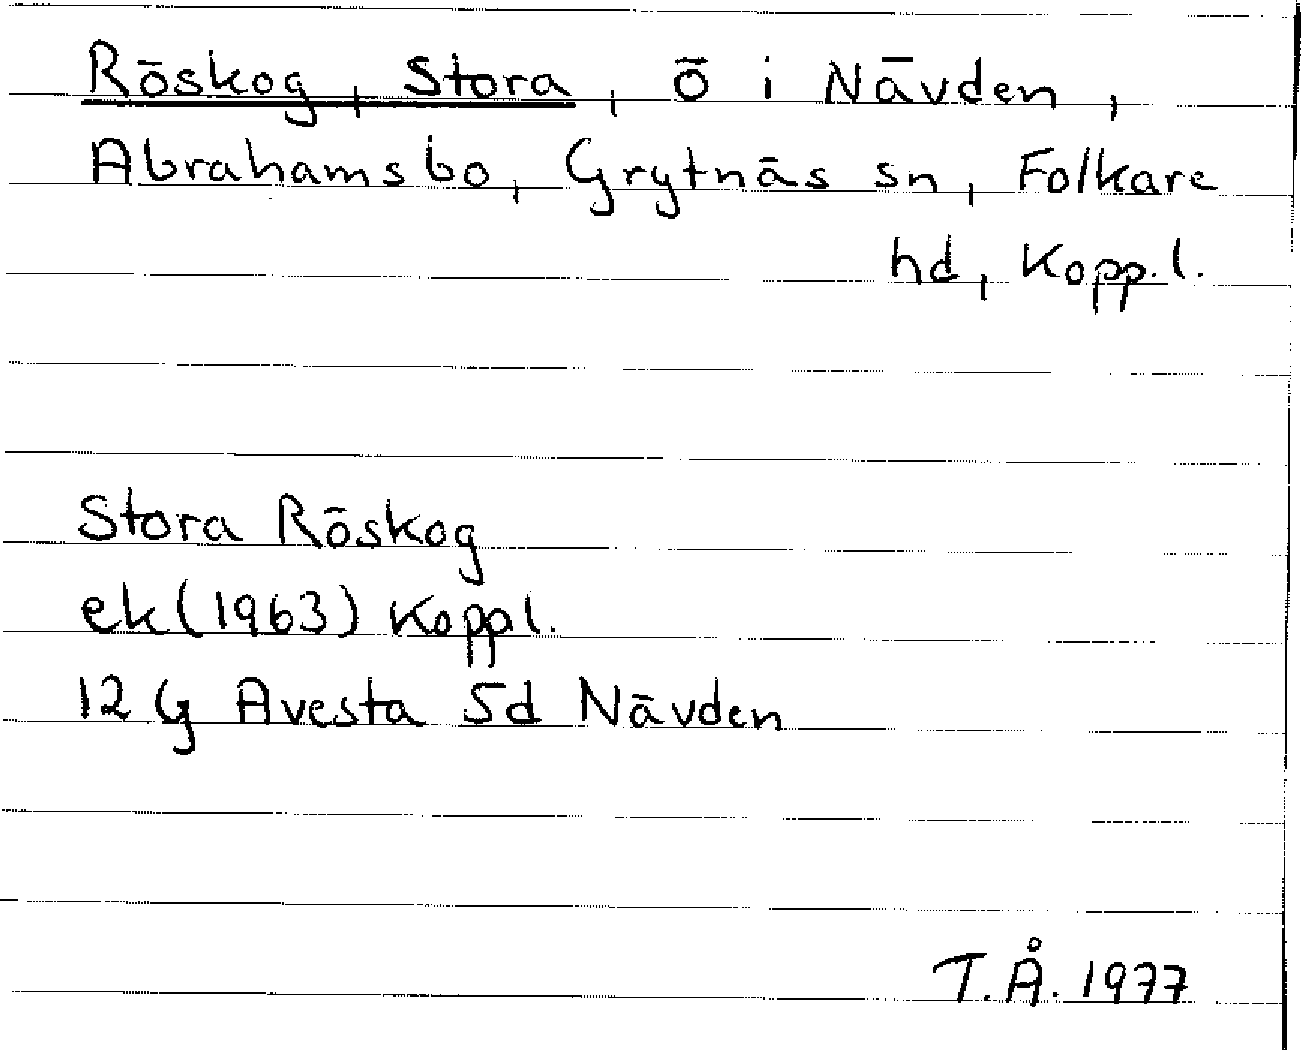 Röskog, Stora, ö i Nävden,
Abrahamsbo, Grytnäs sn, Folkare
hd, Kopp.l.
Stora Röskog
ek (1963) Koppl.
12 G Avesta 5d Nävden
T.Å. 1977